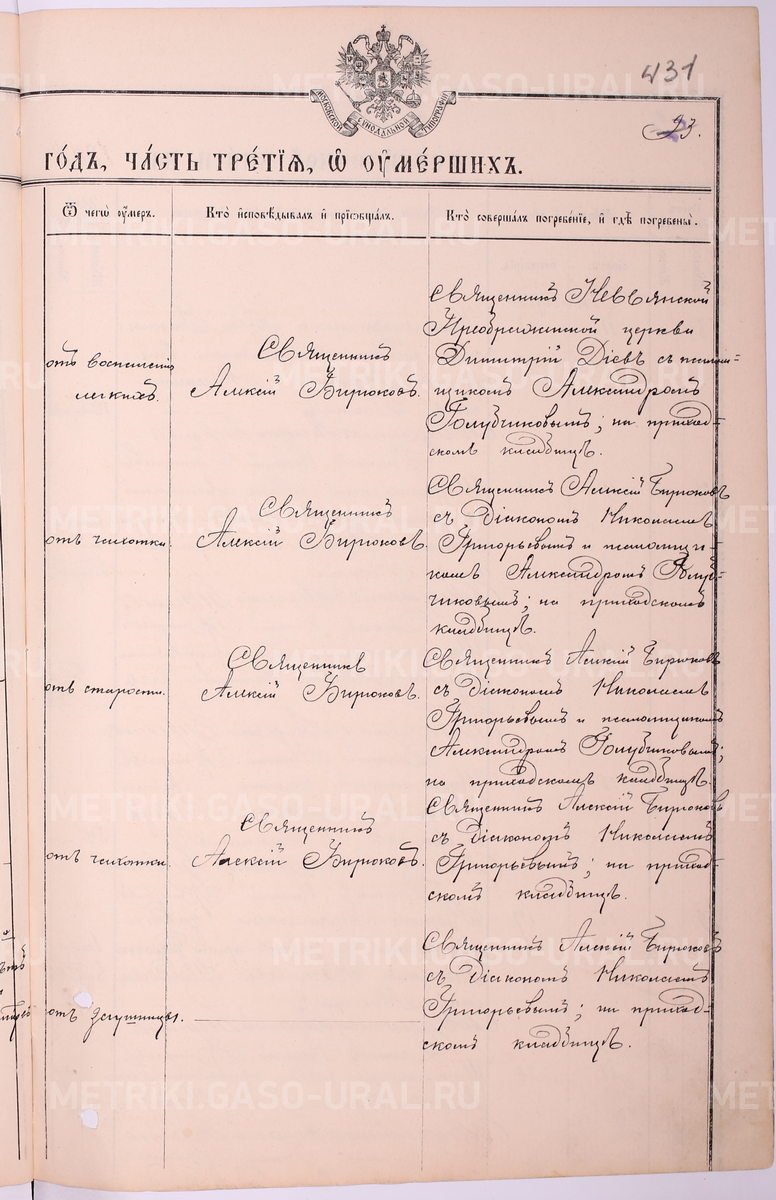 431
23.
МОСКОВСКОЙ СѴНОДАЛЬНОЙ ТИПОГРАФІИ
ГО́ДЪ, ЧА́СТЬ ТРЕ́ТІѦ, Ѡ ОУ҆МЕ́РШИХЪ.
Ѿ чегѡ̀ оу҆́меръ.
Кто̀ и҆сповѣ́дывалъ и҆ прїѡбща́лъ.
Кто̀ соверша́лъ погребе́нїе, и҆ гдѣ̀ погребены̀.
отъ воспаленія
легкихъ.
Священникъ
Алексій Бирюковъ.
Священникъ Невьянской
Преображенской церкви
Димитрій Діевъ съ псалом-
щикомъ Александромъ
Голубчиковымъ; на приход-
скомъ кладбищѣ.
отъ чахотки.
Священникъ
Алексій Бирюковъ.
Священникъ Алексій Бирюковъ
съ Діакономъ Николаемъ
Григорьевымъ и псаломщи-
комъ Александромъ Голуб-
чиковымъ; на приходскомъ
кладбищѣ.
отъ старости.
Священникъ
Алексій Бирюковъ.
Священникъ Алексій Бирюковъ
съ Діакономъ Николаемъ
Григорьевымъ и псаломщикомъ
Александромъ Голубчиковымъ;
на приходскомъ кладбищѣ.
отъ чахотки.
Священникъ
Алексій Бирюковъ.
Священникъ Алексій Бирюковъ
съ Діакономъ Николаемъ
Григорьевымъ; на приход-
скомъ кладбищѣ.
отъ
Священникъ Алексій Бирюковъ
съ Діакономъ Николаемъ
Григорьевымъ; на приход-
скомъ кладбищѣ.
METRIKI.GASO-URAL.RU